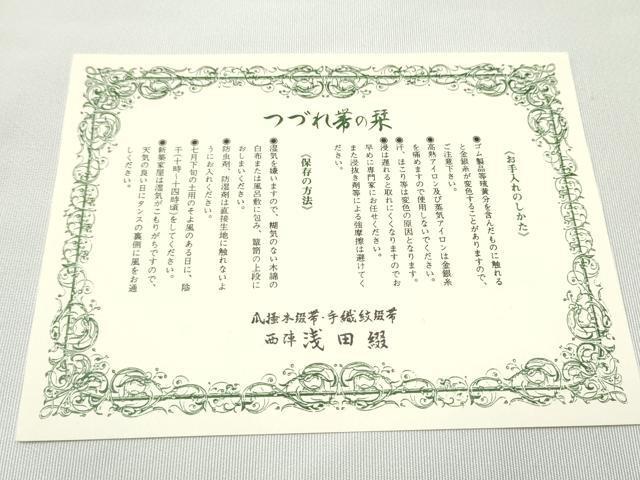 つづれ帯の栞
〈お手入れのしかた〉
●ゴム製品等硫黄分を含んだものに触れる
と金銀糸が変色することがありますので、
ご注意下さい。
●高熱アイロン及び蒸気アイロンは金銀糸
を痛めますので使用しないでください。
●汗、ほこり等は変色の原因となります。
●浸は遅れると取れにくくなりますのでお
早めに専門家にお任せください。
また浸抜き剤等による強摩擦は避けてく
ださい。
〈保存の方法〉
●湿気を嫌いますので、糊気のない木綿の
白布または風呂敷に包み、簞笥の上段に
おしまいください。
●防虫剤、防湿剤は直接生地に触れないよ
うにお入れください。
●七月下旬の土用のそよ風のある日に、陰
干(十時〜十四時頃)をしてください。
●新築家屋は湿気がこもりがちですので、
天気の良い日にタンスの裏側に風をお通
しください。
爪掻本綴帯・手織紋綴帯
西陣 浅田綴